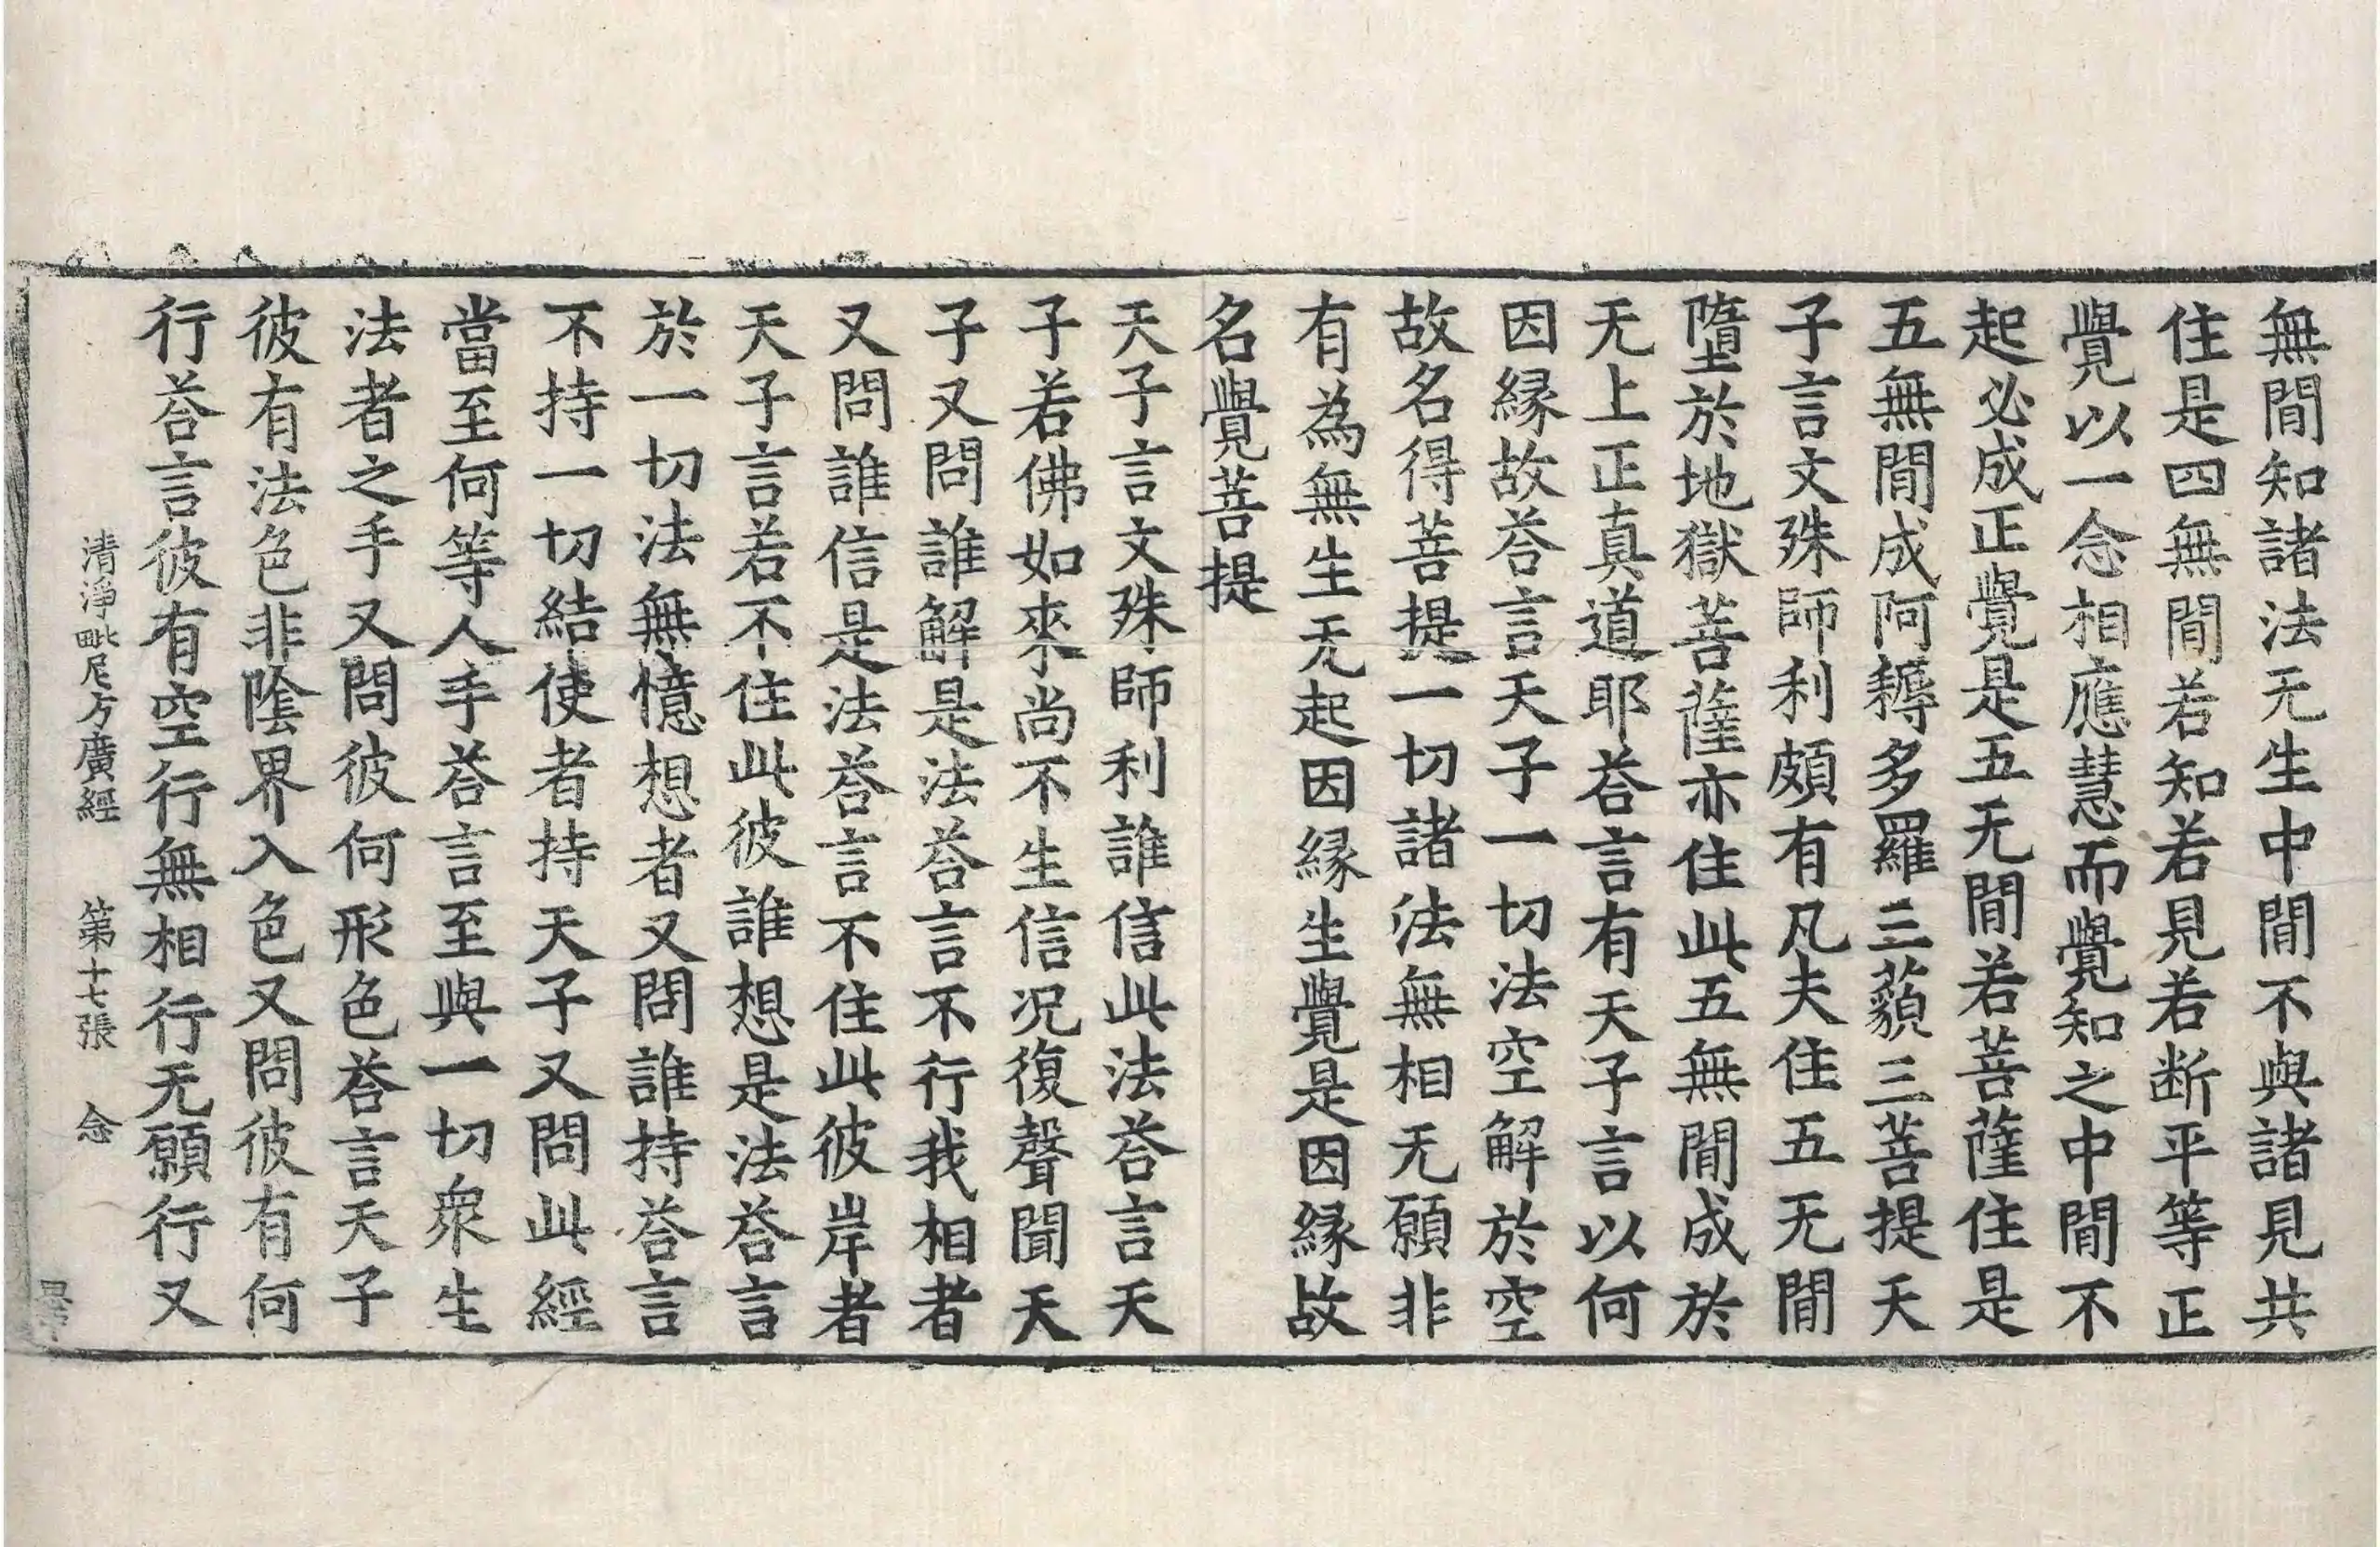 無閒知諸法无生中閒不與諸見共
住是四無閒若知若見若断平等正
覺以一念相應慧而覺知之中閒不
起必成正覺是五无閒若菩薩住是
五無閒成阿耨多羅三藐三菩提天
子言文殊師利頗有凡夫住五无閒
墮於地獄菩薩亦住此五無閒成於
无上正真道耶荅言有天子言以何
因縁故荅言天子一切法空解於空
故名得菩提一切諸法無相无願非
有為無生无起因縁生覺是因縁故
名覺菩提
天子言文殊師利誰信此法荅言天
子若佛如來尚不生信况復聲聞天
子又問誰解是法荅言不行我相者
又問誰信是法荅言不住此彼岸者
天子言若不住此彼誰想是法荅言
於一切法無憶想者又問誰持荅言
不持一切結使者持天子又問此經
當至何等人手荅言至與一切衆生
法者之手又問彼何形色荅言天子
彼有法色非陰界入色又問彼有何
行荅言彼有空行無相行无願行又
清淨毗尼方廣經 第十七張 念